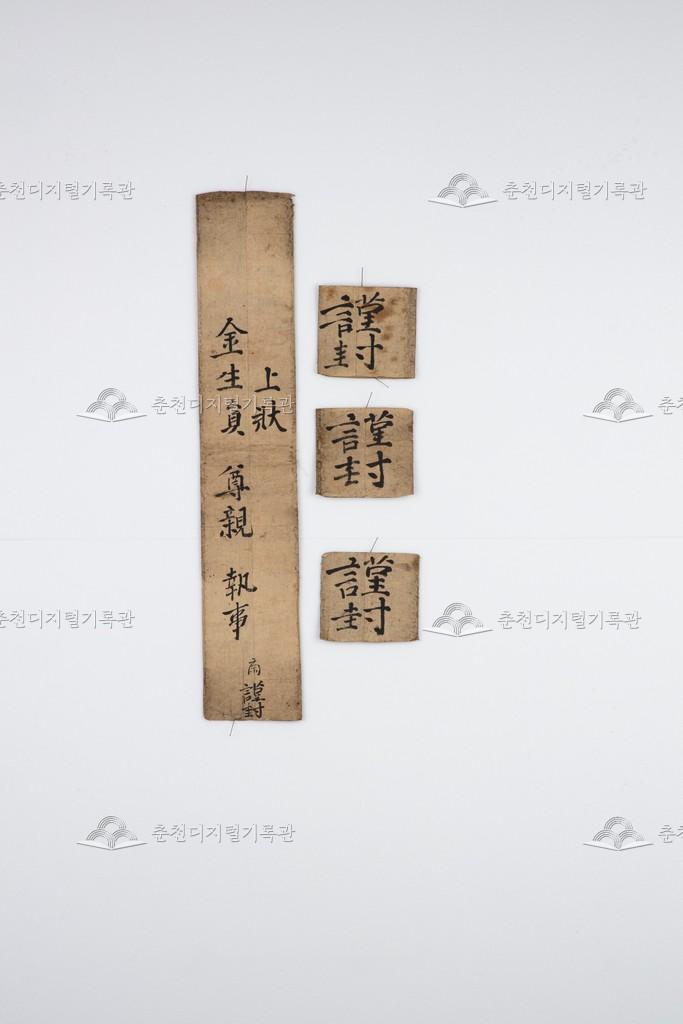 上狀
金生員 尊親 執事
謹封
謹封
謹封
謹封
춘천디지털기록관
춘천디지털기록관
춘천디지털기록관
춘천디지털기록관
춘천디지털기록관
춘천디지털기록관